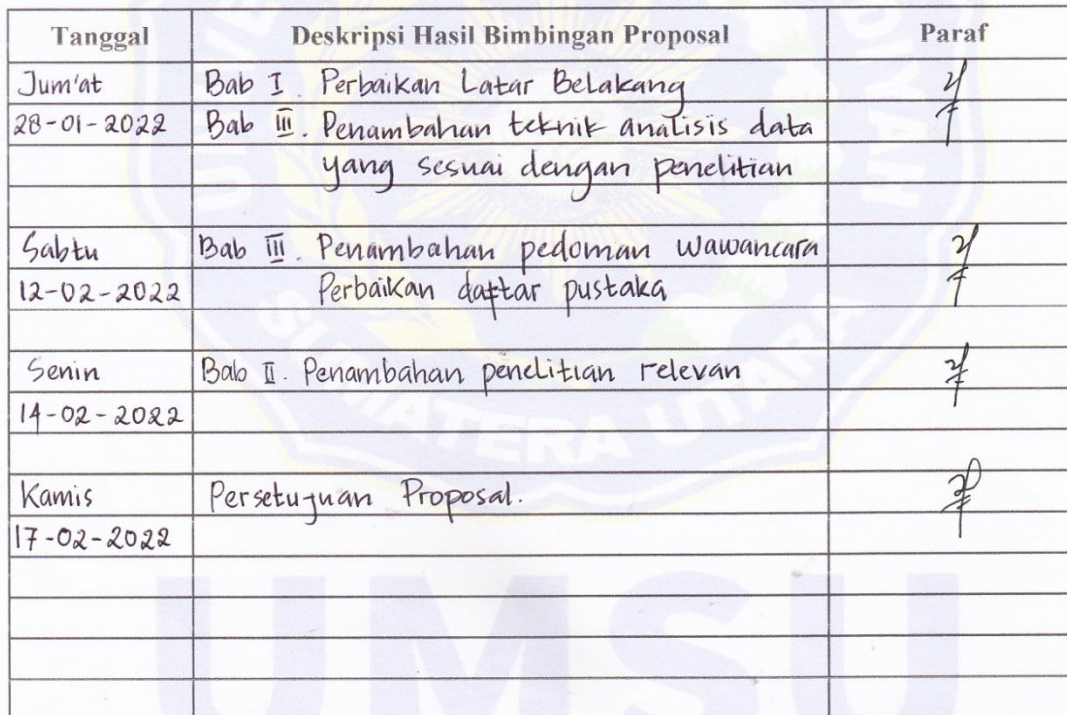 Tanggal Deskripsi Hasil Bimbingan Proposal Paraf
Jum'at Bab I. Perbaikan Latar Belakang
28-01-2022 Bab III. Penambahan teknik analisis data
yang sesuai dengan penelitian
Sabtu Bab III. Penambahan pedoman wawancara
12-02-2022 Perbaikan daftar pustaka
Senin Bab II. Penambahan penelitian relevan
14-02-2022
Kamis Persetujuan Proposal.
17-02-2022
SUMATERA UTARA
UMSU